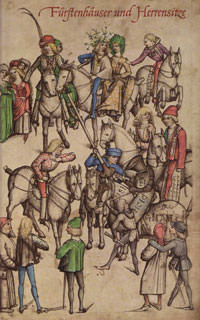 Fürstenhäuser und Herrensitze